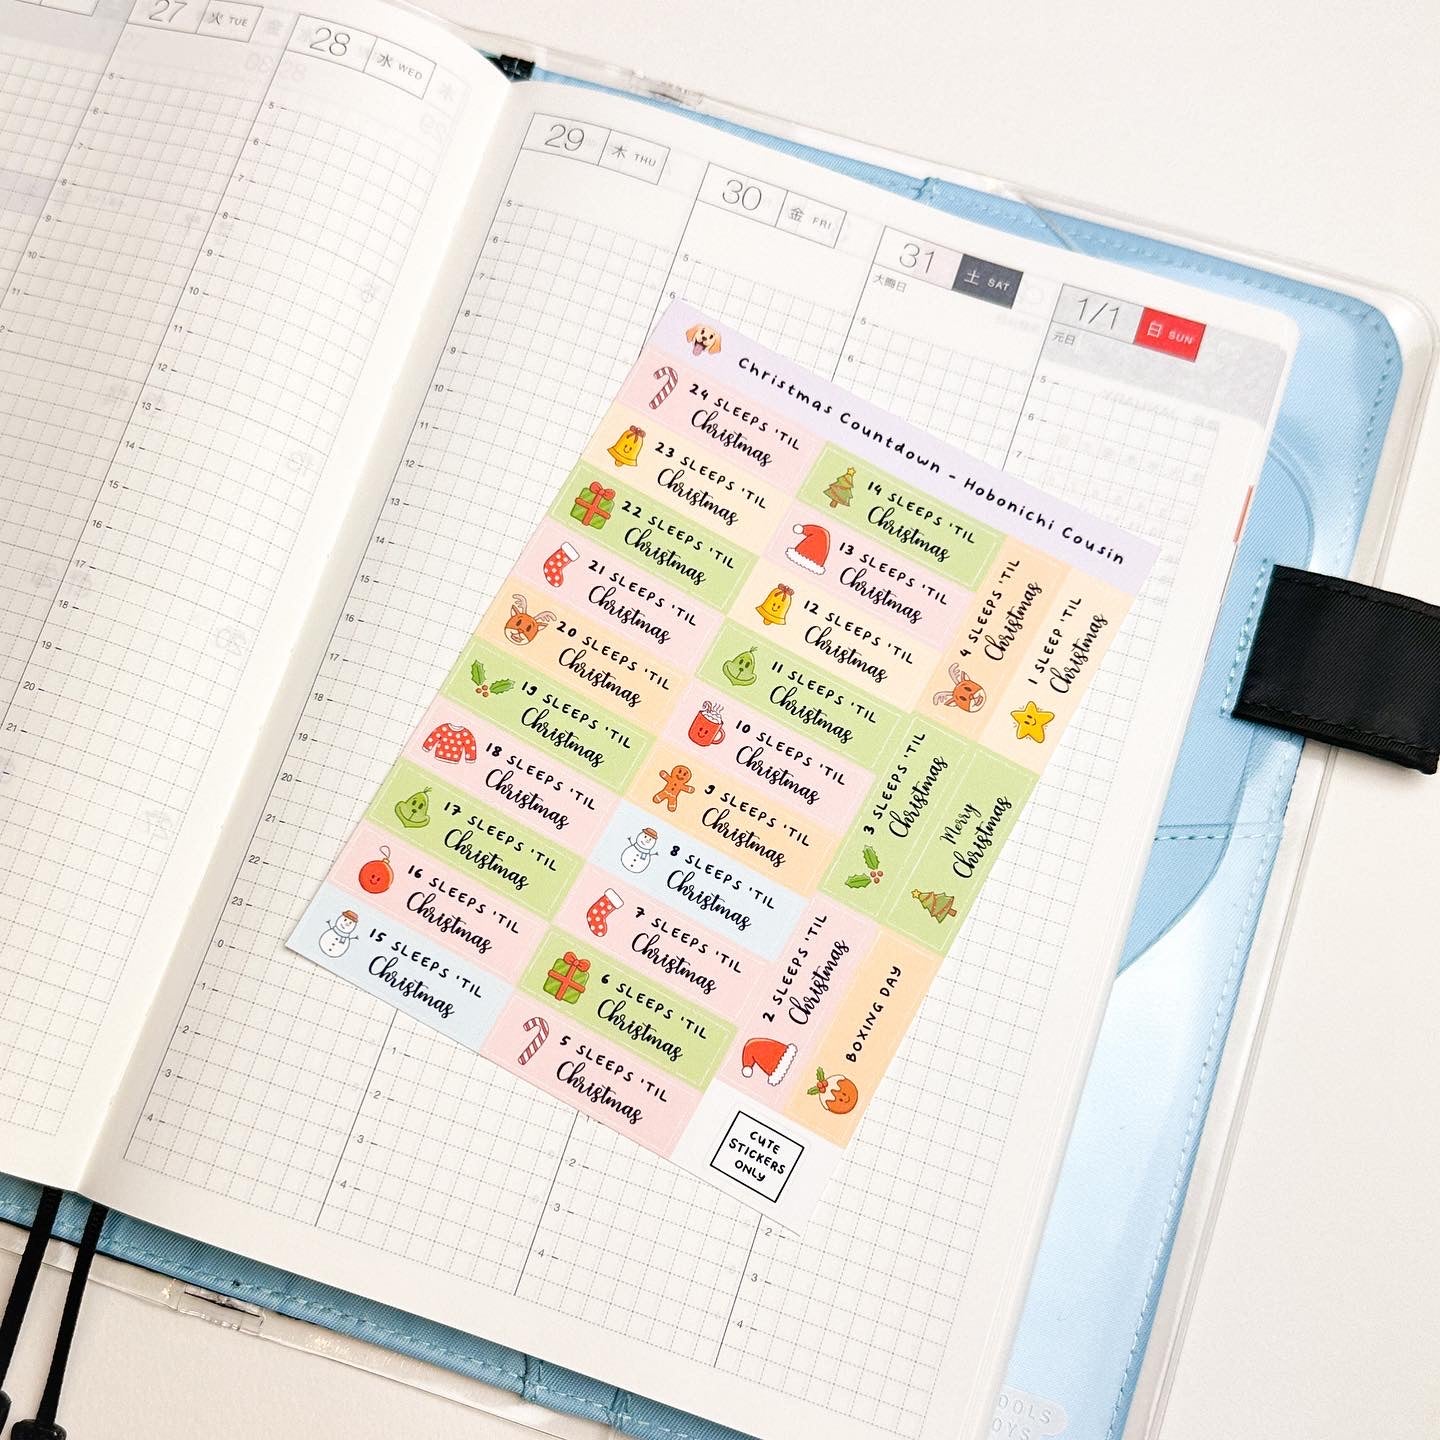 27 火 TUE
28 水 WED
29 木 THU
30 金 FRI
31 土 SAT
大晦日
1/1 日 SUN
元日
Christmas Countdown - Hobonichi Cousin
24 SLEEPS 'TIL
Christmas
23 SLEEPS 'TIL
Christmas
22 SLEEPS 'TIL
Christmas
21 SLEEPS 'TIL
Christmas
20 SLEEPS 'TIL
Christmas
19 SLEEPS 'TIL
Christmas
18 SLEEPS 'TIL
Christmas
17 SLEEPS 'TIL
Christmas
16 SLEEPS 'TIL
Christmas
15 SLEEPS 'TIL
Christmas
14 SLEEPS 'TIL
Christmas
13 SLEEPS 'TIL
Christmas
12 SLEEPS 'TIL
Christmas
11 SLEEPS 'TIL
Christmas
10 SLEEPS 'TIL
Christmas
9 SLEEPS 'TIL
Christmas
8 SLEEPS 'TIL
Christmas
7 SLEEPS 'TIL
Christmas
6 SLEEPS 'TIL
Christmas
5 SLEEPS 'TIL
Christmas
4 SLEEPS 'TIL
Christmas
3 SLEEPS 'TIL
Christmas
2 SLEEPS 'TIL
Christmas
1 SLEEP 'TIL
Christmas
Merry
Christmas
BOXING DAY
CUTE
STICKERS
ONLY